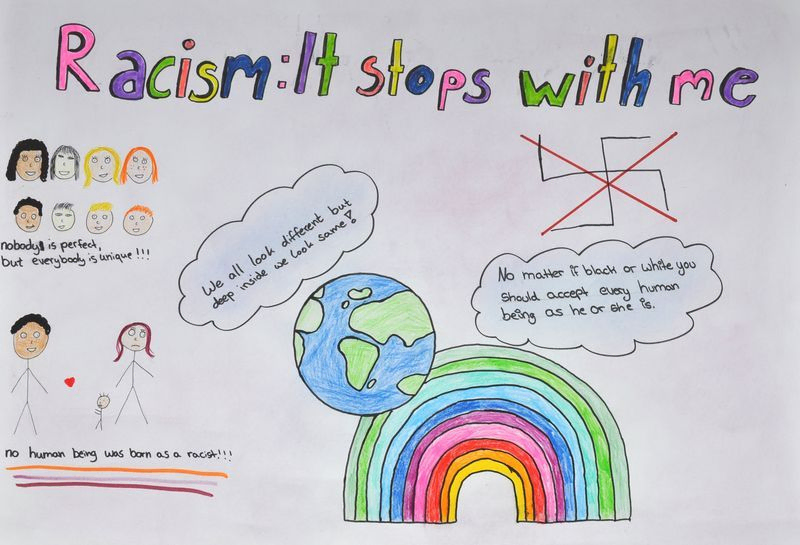 Racism: It stops with me
nobody is perfect,
but everybody is unique!!!
We all look different but
deep inside we look same!
No matter if black or white you
should accept every human
being as he or she is.
no human being was born as a racist!!!